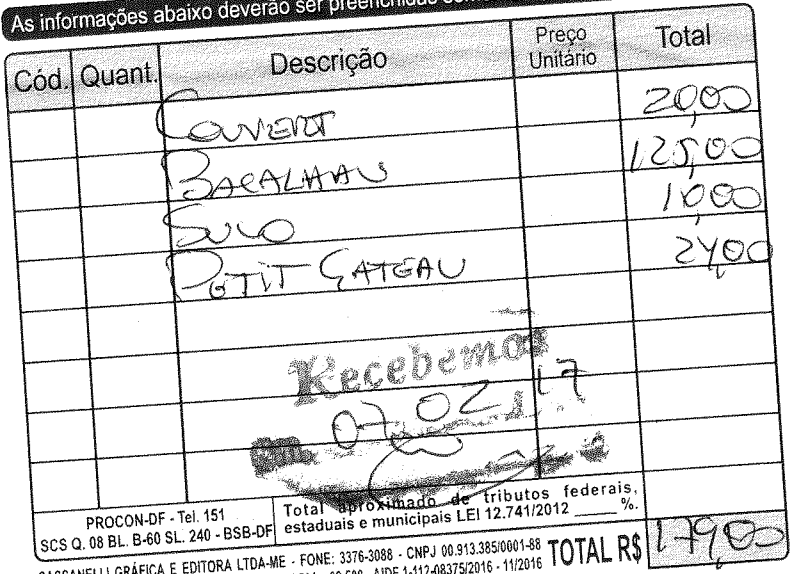 As informações abaixo deverão ser preenchidas
Cód. Quant. Descrição Preço Unitário Total
COUVERT 20,00
BACALHAU 125,00
SUCO 10,00
PETIT GATEAU 24,00
Recebemos
em 07 02 17
PROCON-DF - Tel. 151
SCS Q. 08 BL. B-60 SL. 240 - BSB-DF
Total aproximado de tributos federais,
estaduais e municipais LEI 12.741/2012 _____ %.
GRÁFICA E EDITORA LTDA-ME - FONE: 3376-3088 - CNPJ 00.913.385/0001-88
AIDF 1-112-08375/2016 - 11/2016
TOTAL R$ 179,00